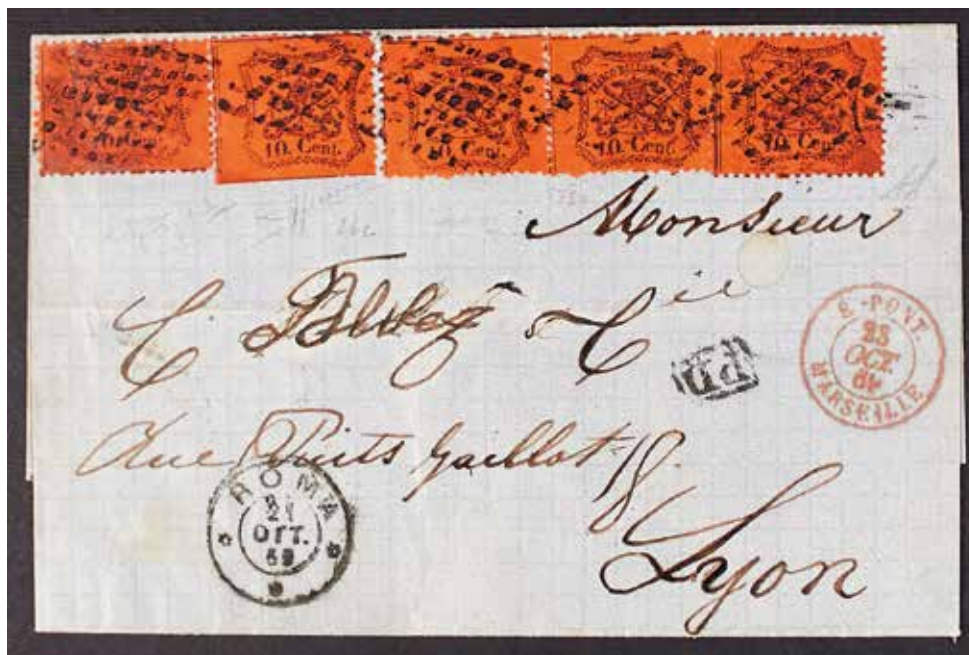 10. Cent. 10. Cent. 10. Cent. 10. Cent.
Monsieur
C. & Cie
P.D.
E.-PONT.
23
OCT.
69
MARSEILLE
Rue Puits Gaillot 18.
ROMA
21
OTT.
69
Lyon